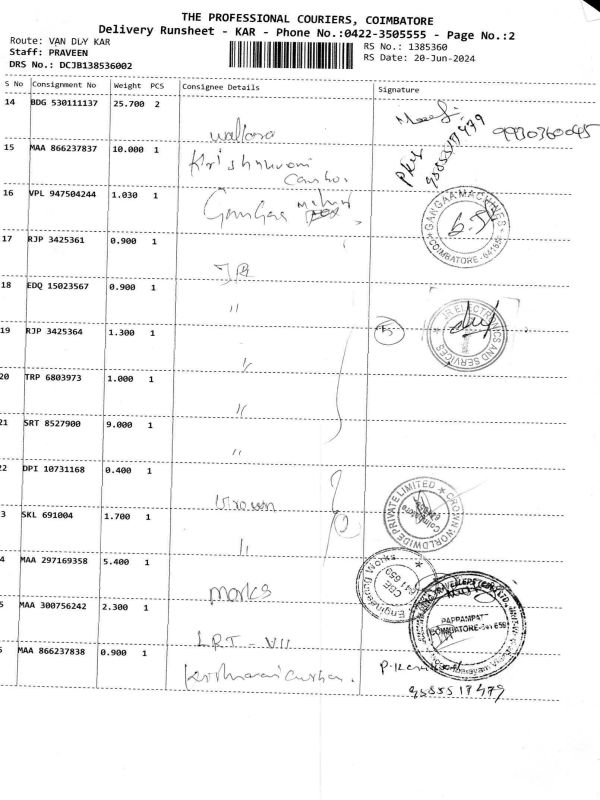 THE PROFESSIONAL COURIERS, COIMBATORE
Delivery Runsheet - KAR - Phone No.:0422-3505555 - Page No.:2
Route: VAN DLY KAR
RS No.: 1385360
Staff: PRAVEEN
RS Date: 20-Jun-2024
DRS No.: DCJB138536002
S No Consignment No Weight PCS Consignee Details Signature
14 BDG 530111137 25.700 2
9930360045
15 MAA 866237837 10.000 1
9585517479
16 VPL 947504244 1.030 1
GANGAA MACHINES
COIMBATORE
17 RJP 3425361 0.900 1
JR
18 EDQ 15023567 0.900 1
"
JR ELECTRONICS AND SERVICES
19 RJP 3425364 1.300 1
"
20 TRP 6803973 1.000 1
"
21 SRT 8527900 9.000 1
"
22 DPI 10731168 0.400 1
Crown
CROWN WORLDWIDE PRIVATE LIMITED
Coimbatore
3 SKL 691004 1.700 1
"
4 MAA 297169358 5.400 1
marks
Engineering Works
CBE
641 659
5 MAA 300756242 2.300 1
LRT - VII
PAPPAMPATTI
COIMBATORE
6 MAA 866237838 0.900 1
9585517479